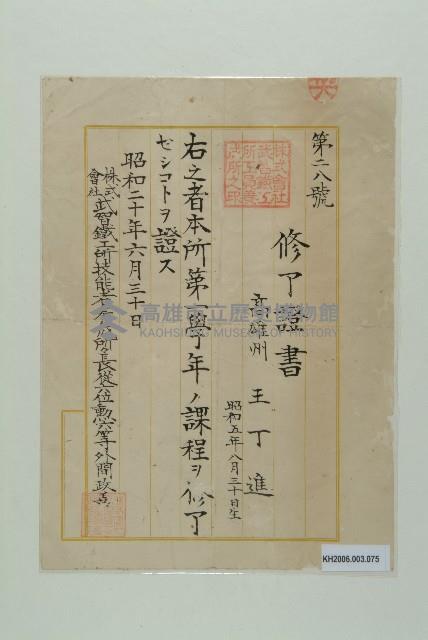 第二八號
修了證書
高雄州
王丁進
昭和五年八月三十日生
右之者本所第一學年ノ課程ヲ修了
セシコトヲ證ス
昭和二十年六月三十日
株式會社武智鐵工所技能者養成所長從六位勳六等外間政
株式會社
武智鐵工
所技能者養
成所之印
高雄市立歷史博物館
KAOHSIUNG MUSEUM OF HISTORY
KH2006.003.075